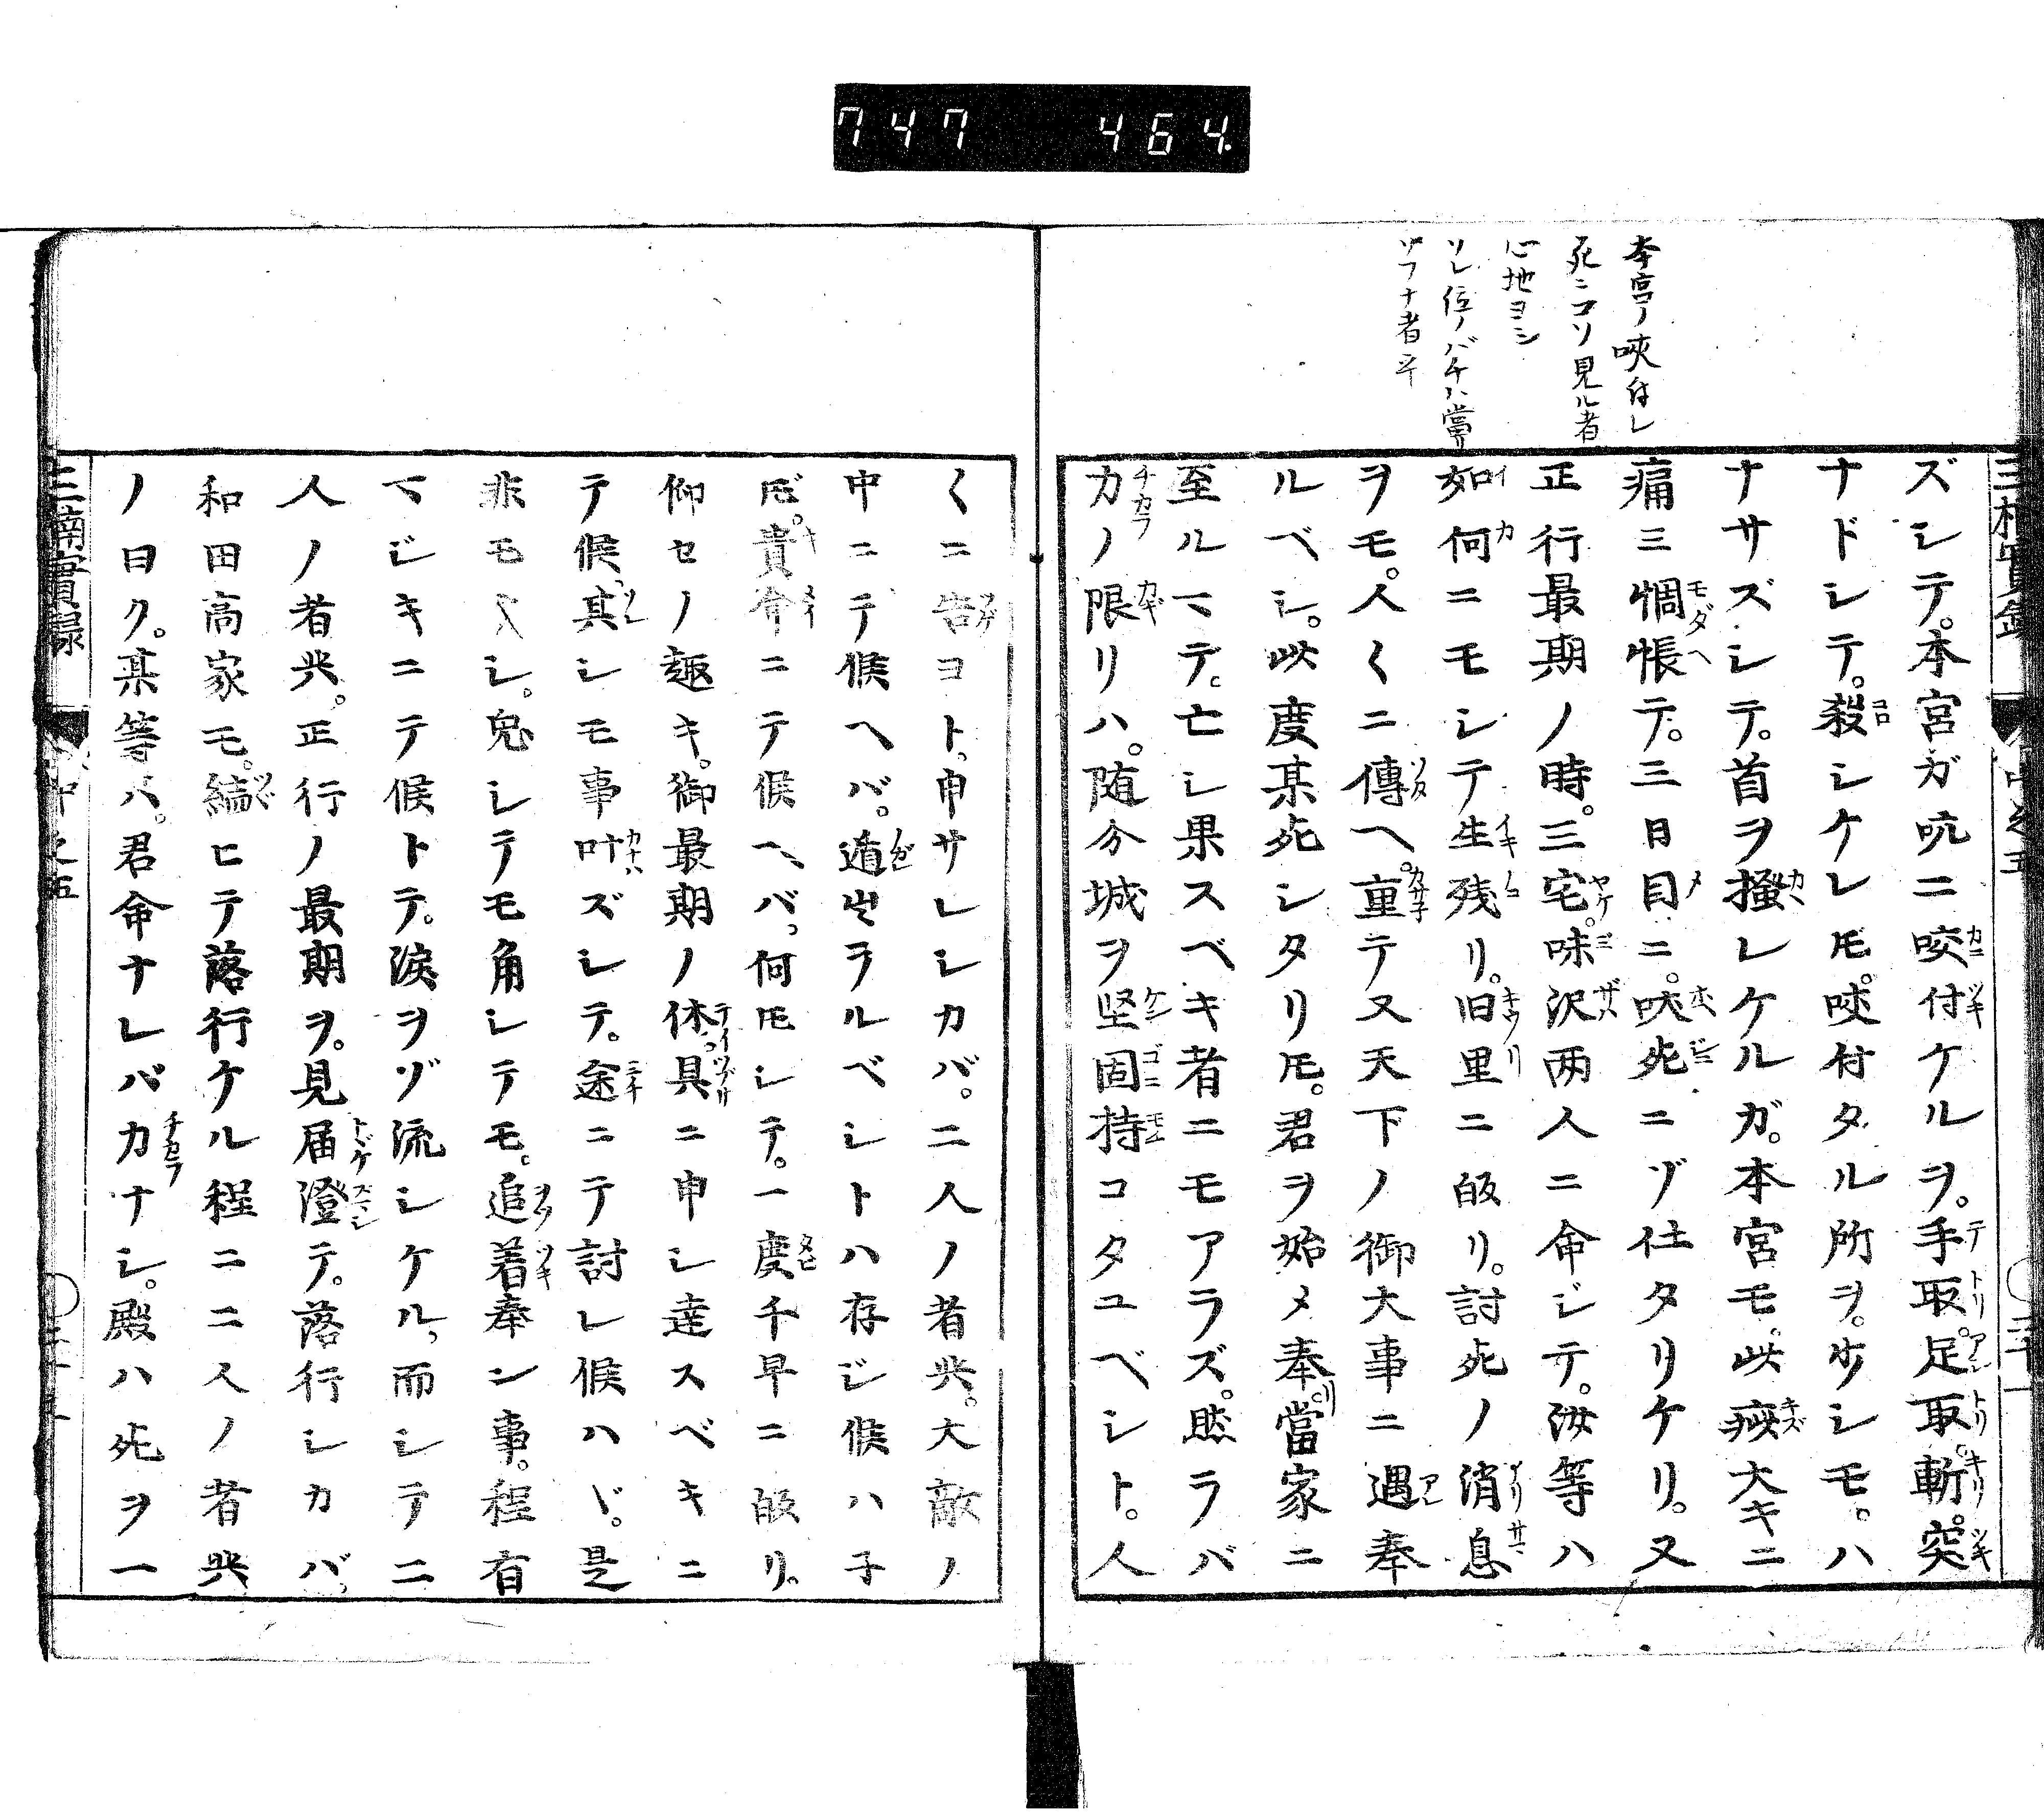 747 464
本宮ノ咬付レ
死ニコソ見ル者
心地ヨシ
ソレ位ノバチハ當リ
ソフナ者平
ズシテ。本宮ガ吭ニ咬付ケルヲ。手取。足取。斬。突。
ナドシテ。殺シケレ𪜈。咬付タル所ヲ。少シモ。ハ
ナサズシテ。首ヲ搔レケルガ。本宮モ。此疵大キニ
痛ミ惆悵テ。三日目ニ。吠死ニゾ仕タリケリ。又
正行最期ノ時。三宅。味沢両人ニ命ジテ。汝等ハ
如何ニモシテ生残リ。旧里ニ皈リ。討死ノ消息
ヲモ。人〱ニ傳ヘ。重テ又天下ノ御大事ニ遇奉
ルベシ。此度某死シタリ𪜈。君ヲ始メ奉リ。當家ニ
至ルマテ。亡シ果スベキ者ニモアラズ。然ラバ
力ノ限リハ。随分城ヲ坚固持コタユベシト。人
〱ニ告ヨト。申サレシカバ。二人ノ者共。大敵ノ
中ニテ候ヘバ。遁出ヲルベシトハ存ジ候ハ子
𪜈。貴命ニテ候ヘバ。何𪜈シテ。一度千早ニ皈リ。
仰セノ趣キ。御最期ノ休。具ニ申シ達スベキニ
テ候。其シモ事叶ズシテ。途ニテ討レ候ハヾ。是
非モ入シ。兎シテモ角シテモ。追着奉ン事。程有
マジキニテ候トテ。淚ヲゾ流シケル。而シテ二
人ノ者共。正行ノ最期ヲ。見届澄テ。落行シカバ。
和田高家モ。繕ヒテ落行ケル程ニ二人ノ者共
ノ曰ク。某等ハ。君命ナレバ力ナシ。殿ハ死ヲ一